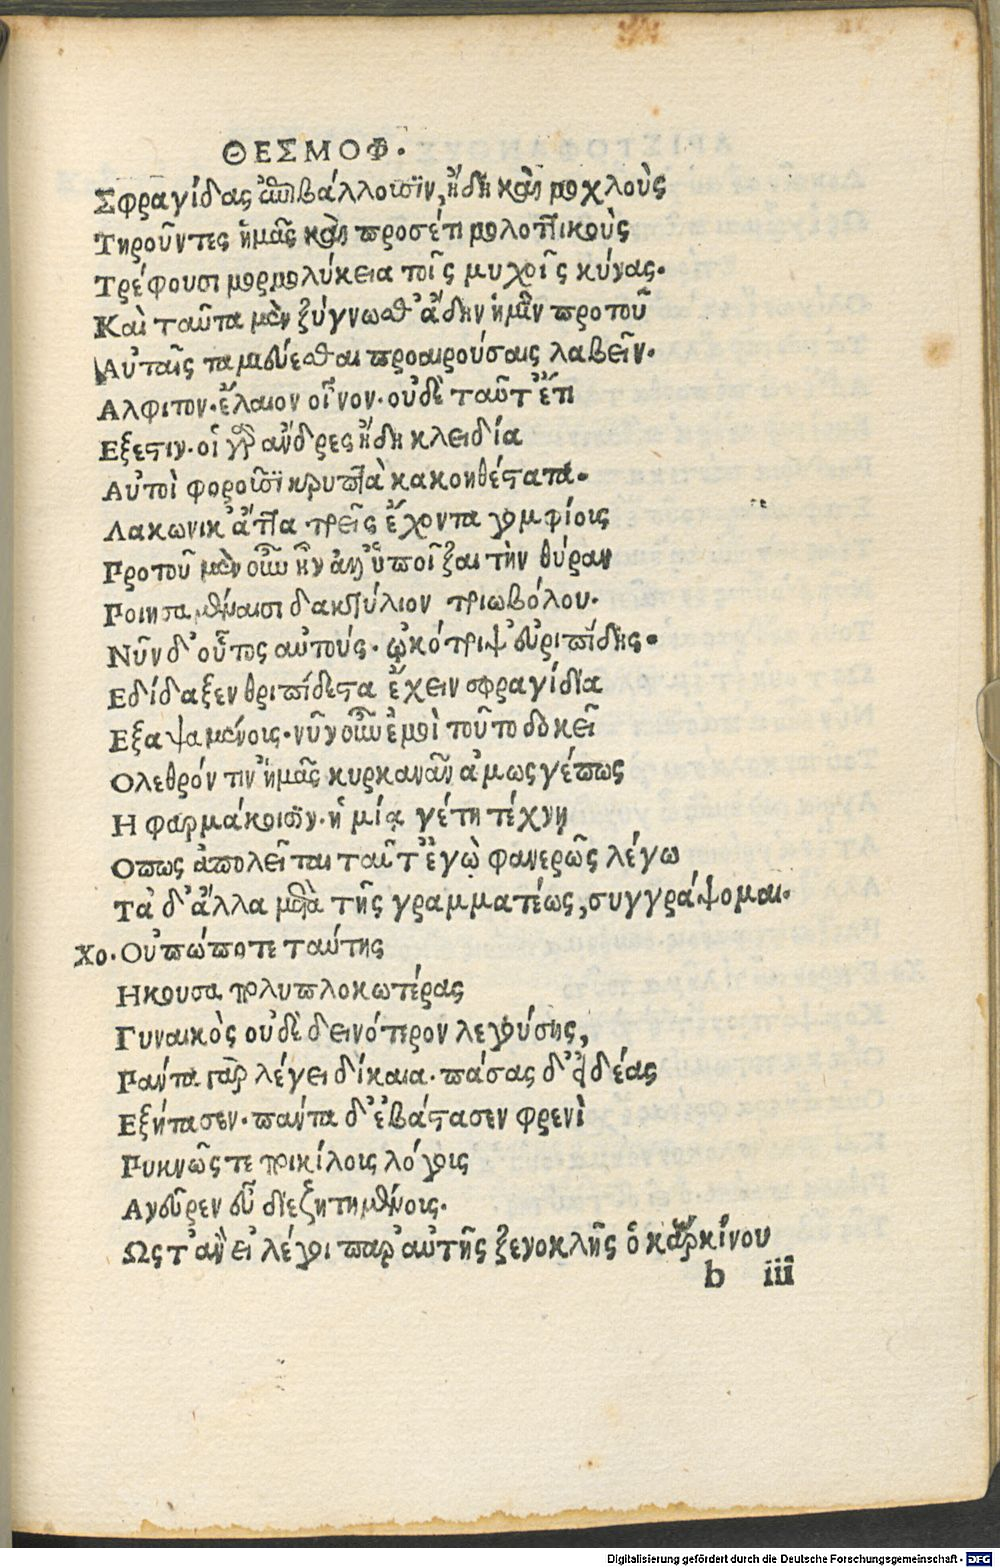 ΘΕΣΜΟΦ.
Σφραγίδας ἐπιβάλλουσιν, ἤδη καὶ μοχλοὺς
Τηροῦντες ἡμᾶς καὶ προσέτι μολοττικοὺς
Τρέφουσι μορμολύκεια τοῖς μυχοῖς κύνας.
Καὶ ταῦτα μὲν ξύγνωσθ' ἃ δ' ἦν ἡμῖν προτοῦ
Αὐταῖς ταμιεύεσθαι προαιρούσαις λαβεῖν.
Αλφιτον. ἔλαιον οἶνον. οὐδὲ ταῦτ' ἔτι
Εξεστιν. οἱ γὰρ ἄνδρες ἤδη κλειδία
Αὐτοὶ φοροῦσι κρυπτὰ κακοηθέστατα.
Λακωνίκ' ἄττα τρεῖς ἔχοντα γομφίους
Προτοῦ μὲν οὖν ἦν ἀλλ' ὑποῖξαι τὴν θύραν
Ποιησαμέναισι δακτύλιον τριωβόλου.
Νῦν δ' οὗτος αὐτούς. ᾠκότριψ εὐριπίδης.
Εδίδαξεν θριπίδεστα ἔχειν σφραγίδια
Εξαψαμένοις. νῦν οὖν ἐμοὶ τοῦτο δοκεῖ
Ολεθρόν τιν' ἡμᾶς κυρκανᾶν ἀμωσγέπως
Η φαρμάκοισιν. ἢ μίᾳ γέ τῃ τέχνῃ
Οπως ἀπολεῖται ταῦτ' ἐγὼ φανερῶς λέγω
Τὰ δ' ἄλλα μετὰ τῆς γραμματέως, συγγράψομαι.
Χο. Οὐπώποτε ταύτης
Ηκουσα πολυπλοκωτέρας
Γυναικὸς οὐδὲ δεινότερον λεγούσης,
Πάντα γὰρ λέγει δίκαια. πάσας δ' εἰδέας
Εξήτασεν. πάντα δ' ἐβάστασεν φρενὶ
Πυκνῶς τε ποικίλοις λόγοις
Ανεῦρεν εὖ διεζητημένοις.
Ως τ' ἂν εἰ λέγοι παρ' αὐτῆς ξενοκλῆς ὁ καρκίνου
b iii
Digitalisierung gefördert durch die Deutsche Forschungsgemeinschaft - DFG